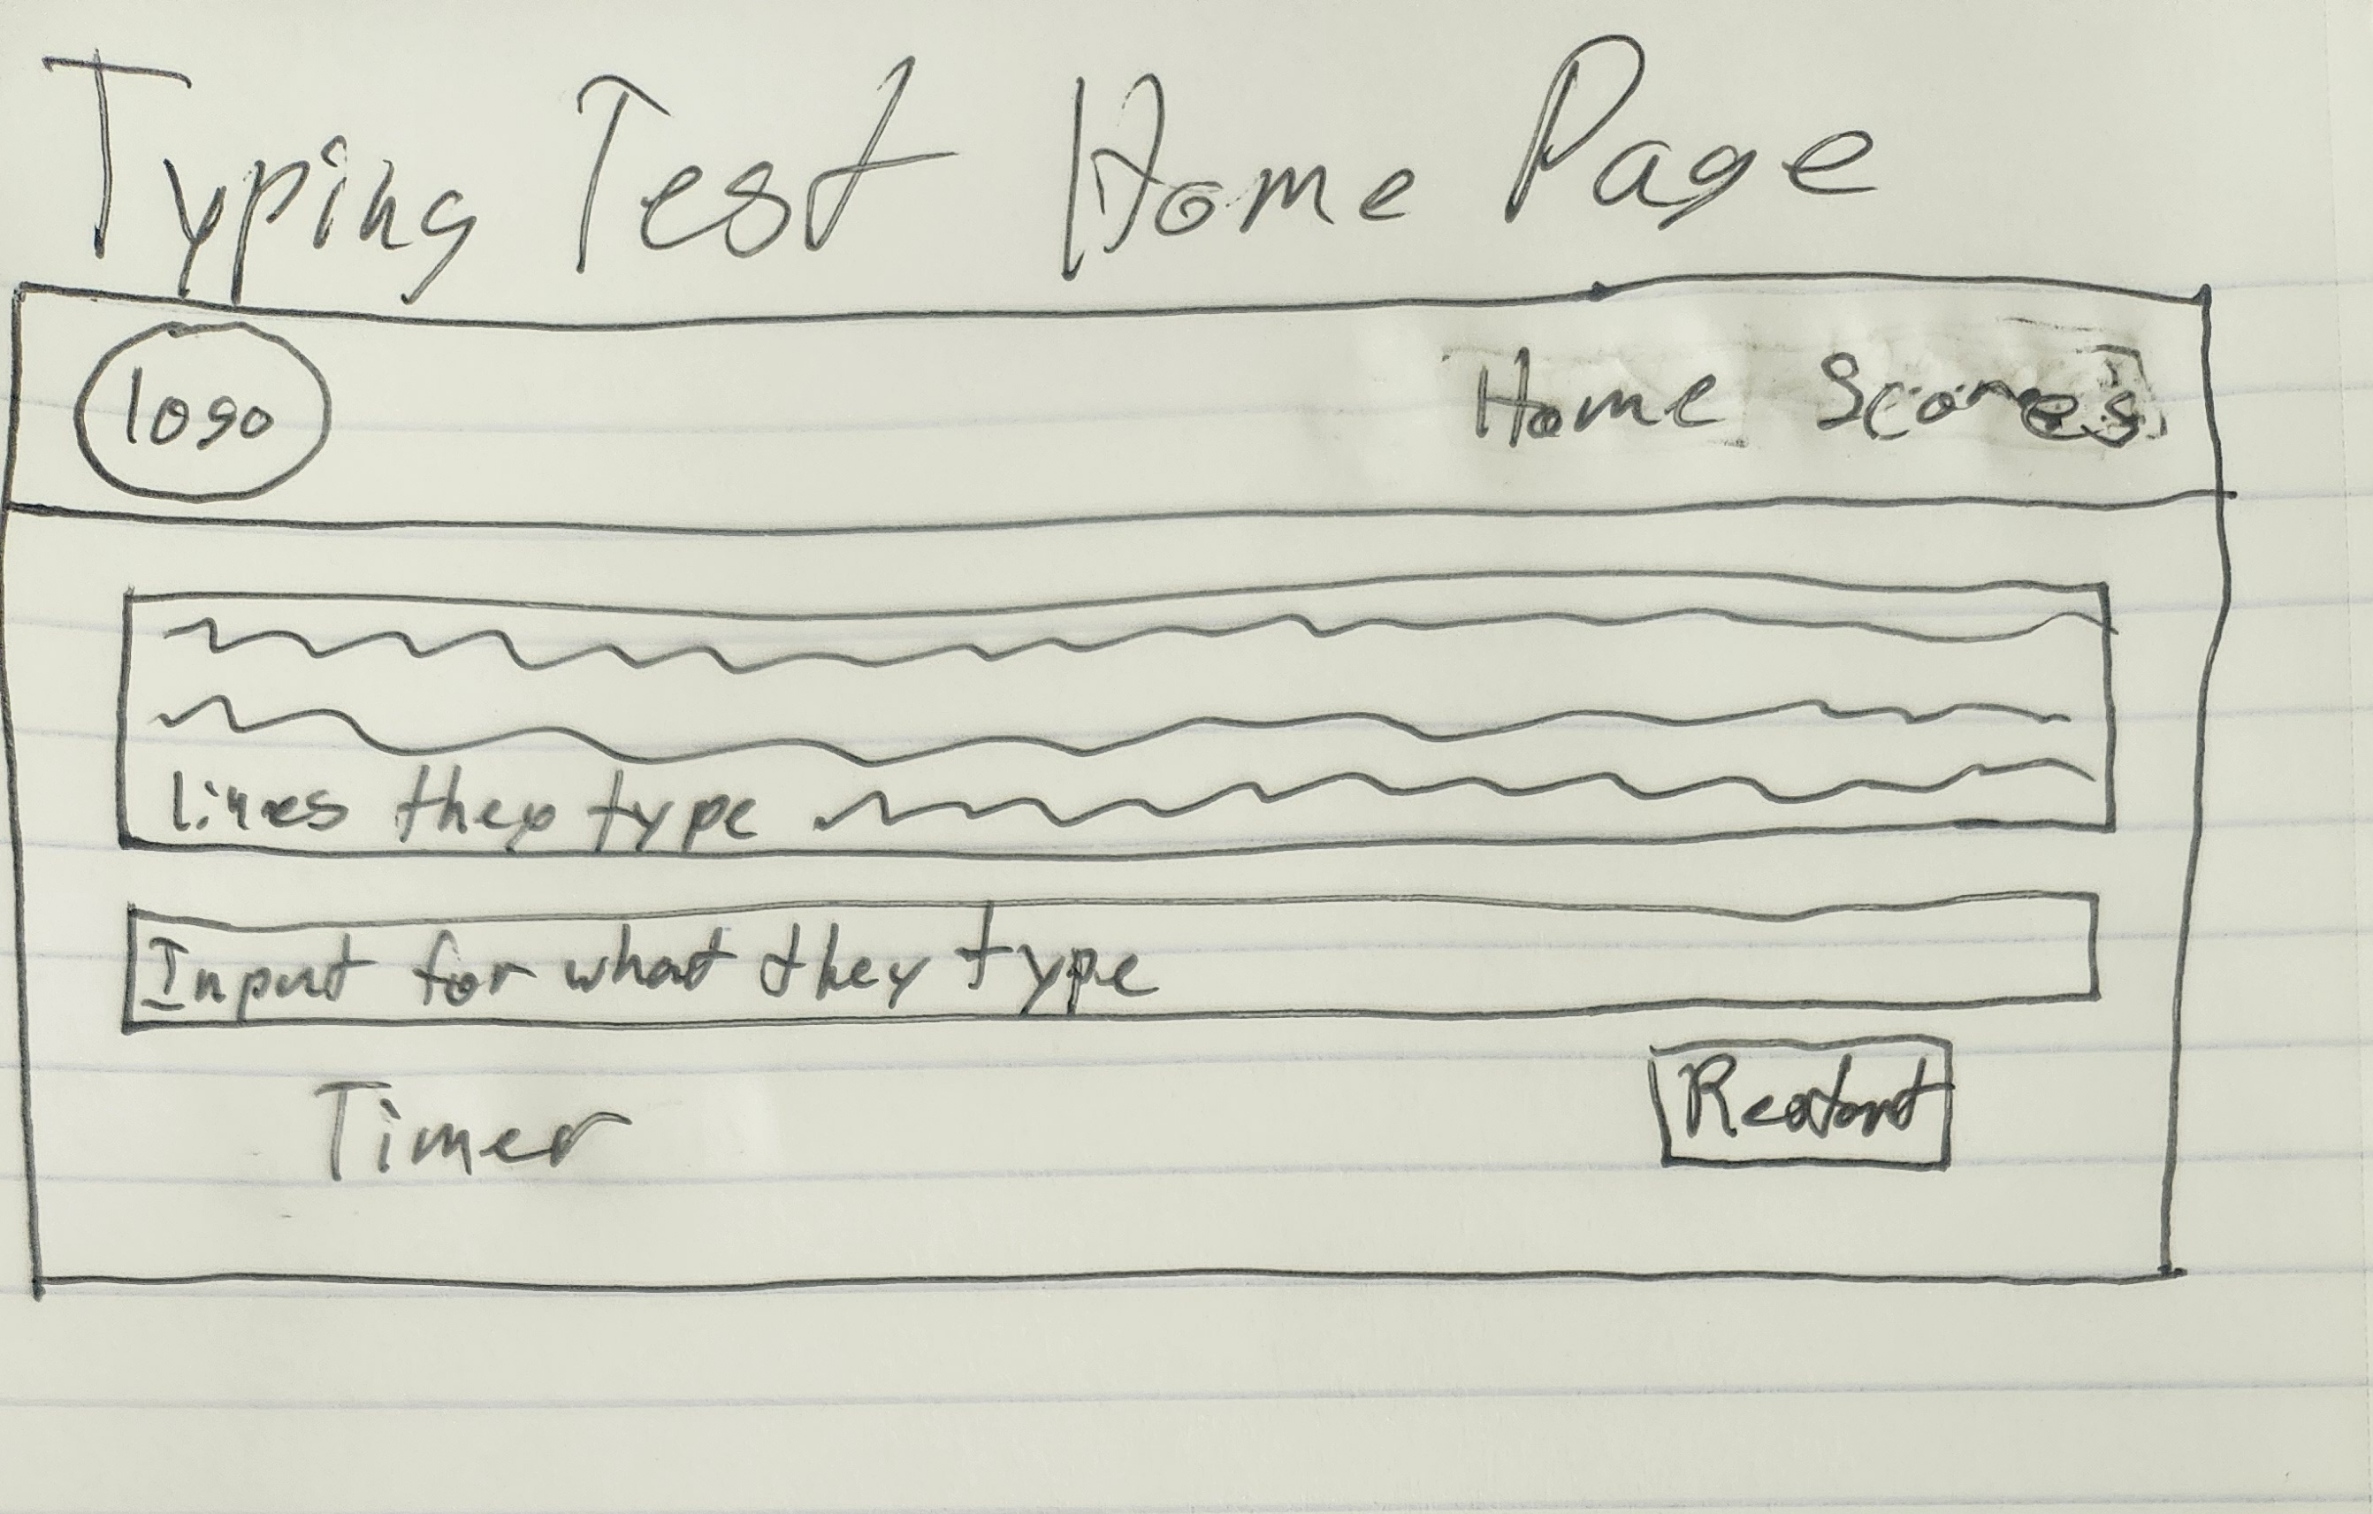 Typing Test Home Page
logo Home Scores
lines they type
Input for what they type
Timer Restart